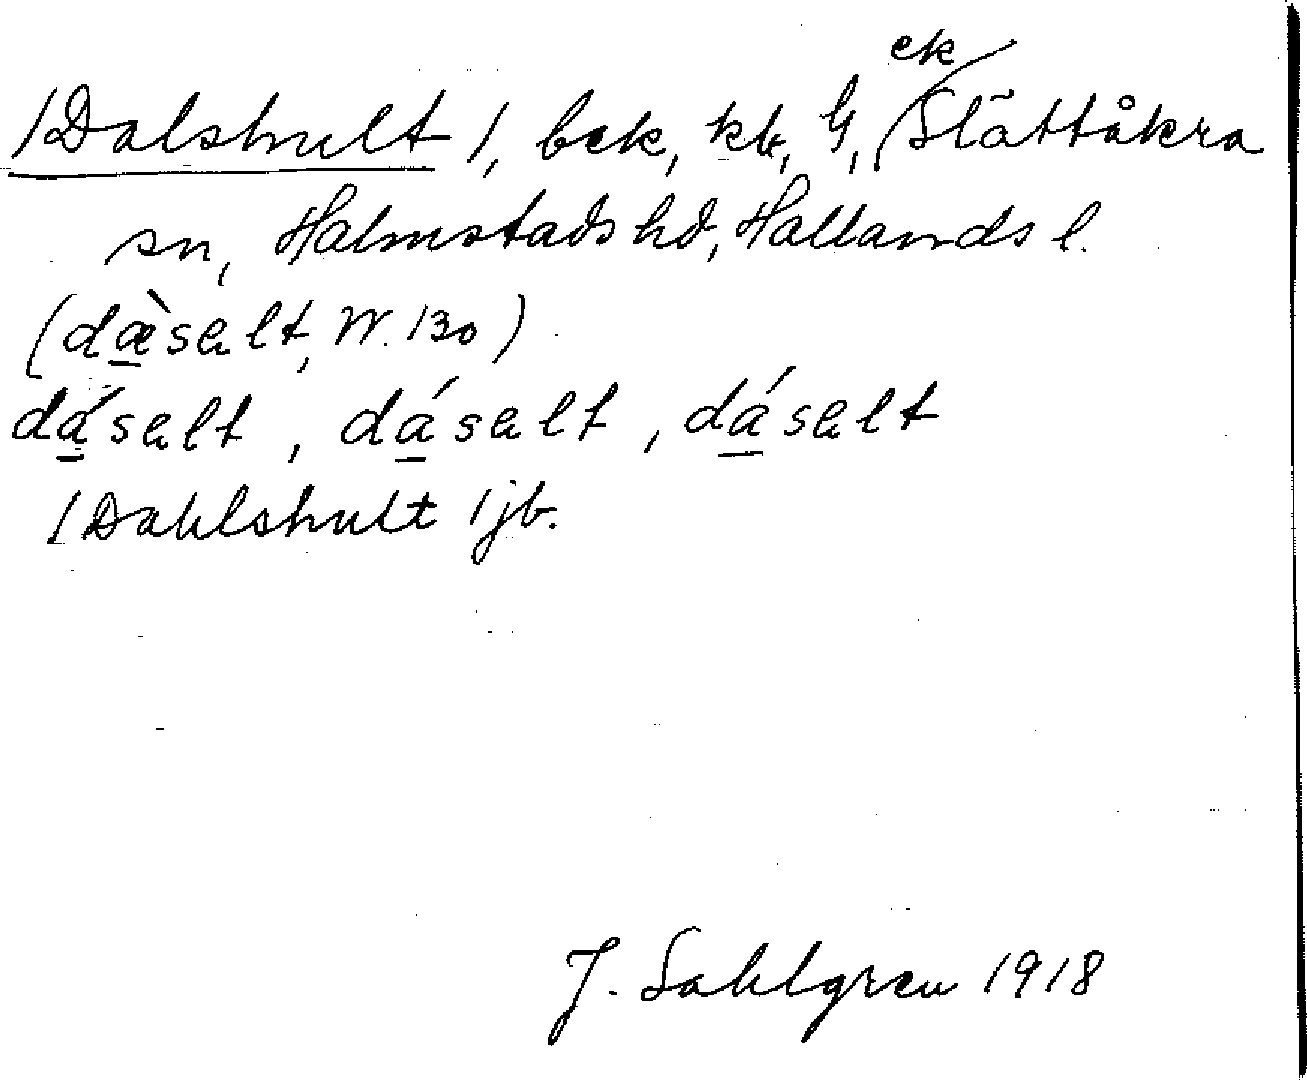 ek
/Dalshult/, bek, kb, G, Slättåkra
sn, Halmstads hd, Hallands l.
(dæ̀salt, W. 130)
dásalt, dásalt, dásalt
/Dahlshult/ jb.
J. Sahlgren 1918